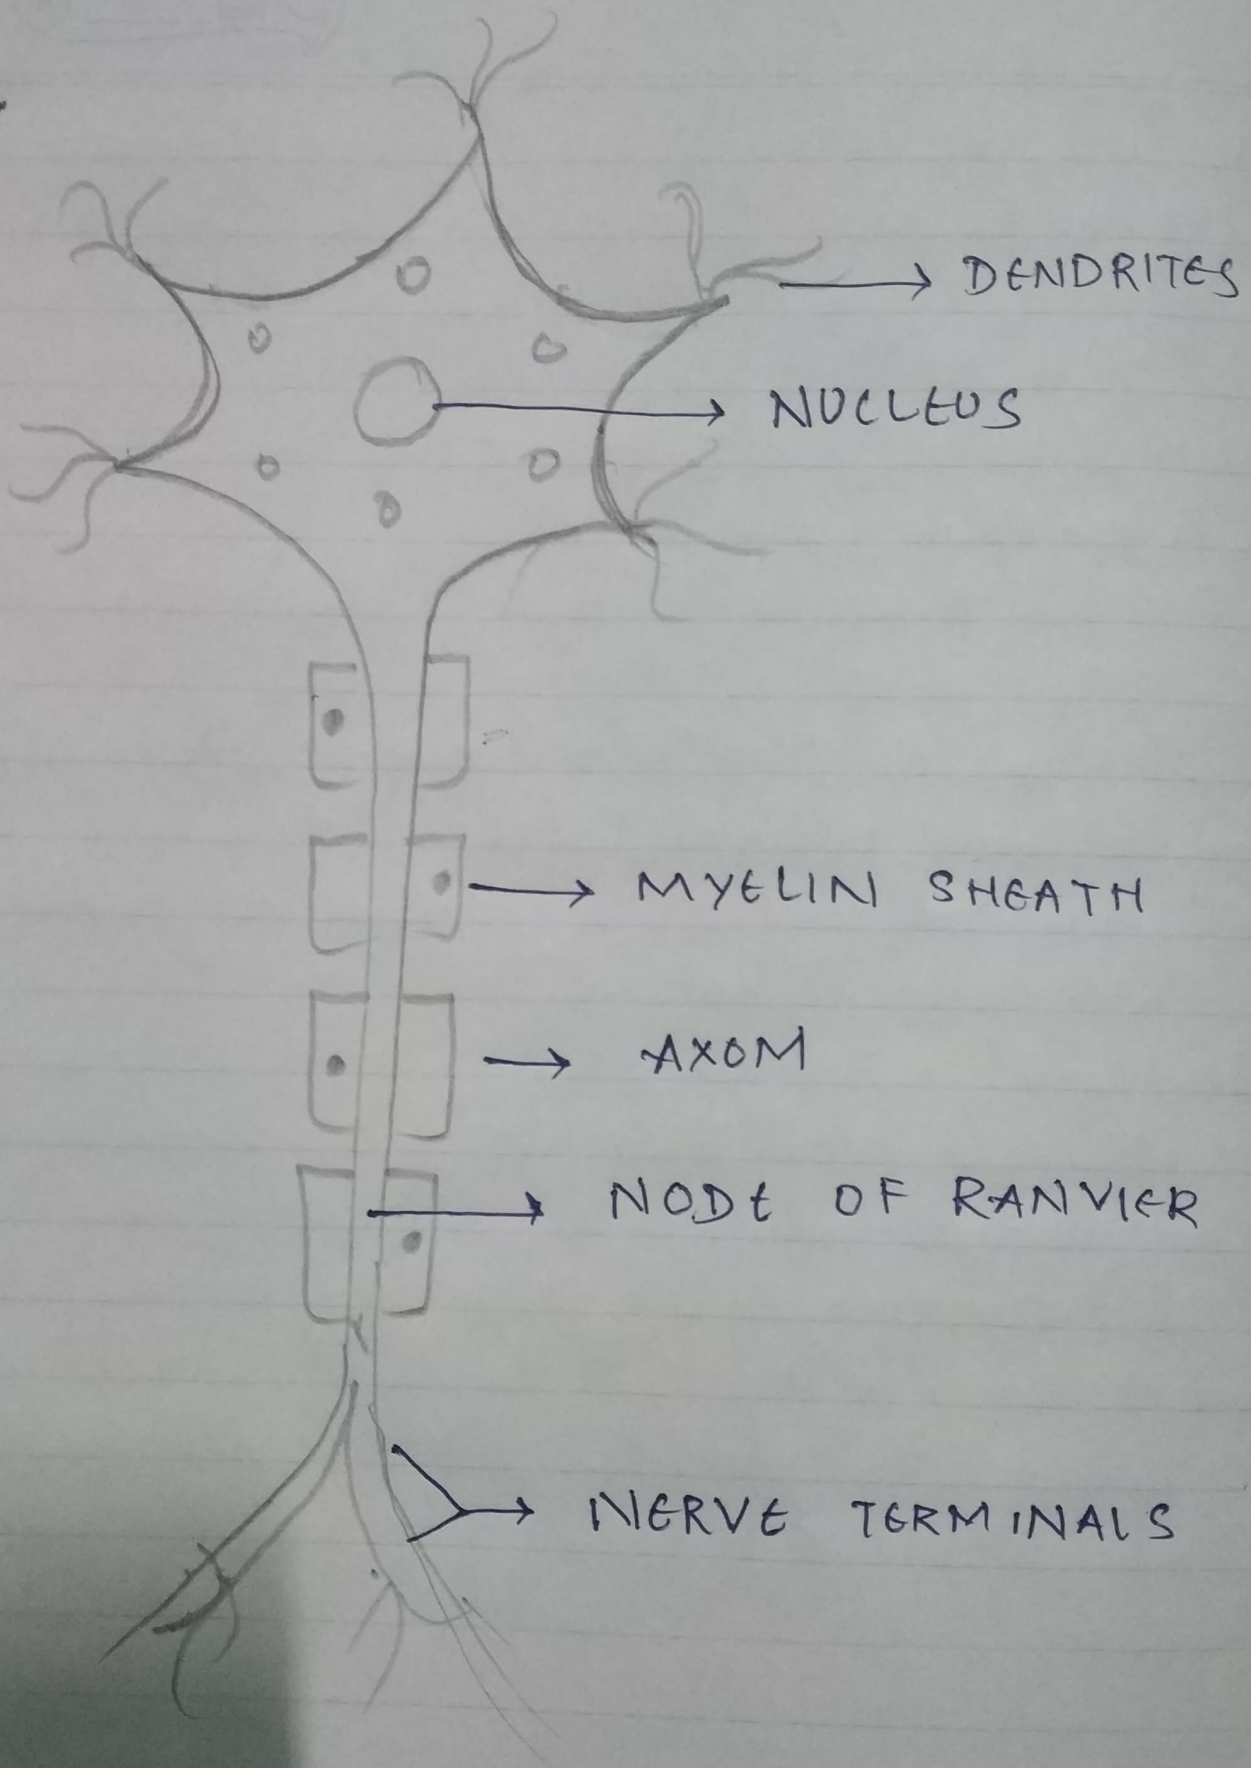 DENDRITES
NUCLEUS
MYELIN SHEATH
AXOM
NODE OF RANVIER
NERVE TERMINALS